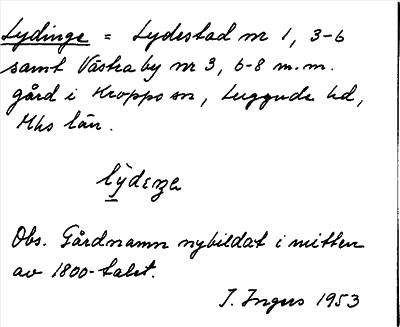 Lydinge = Lydestad nr 1, 3-6
samt Västra by nr 3, 6-8 m.m.
gård i Kropps sn, Luggude hd,
Mhs län.
lỳdɩŋə
Obs. Gårdnamn nybildat i mitten
av 1800-talet.
I. Ingers 1953